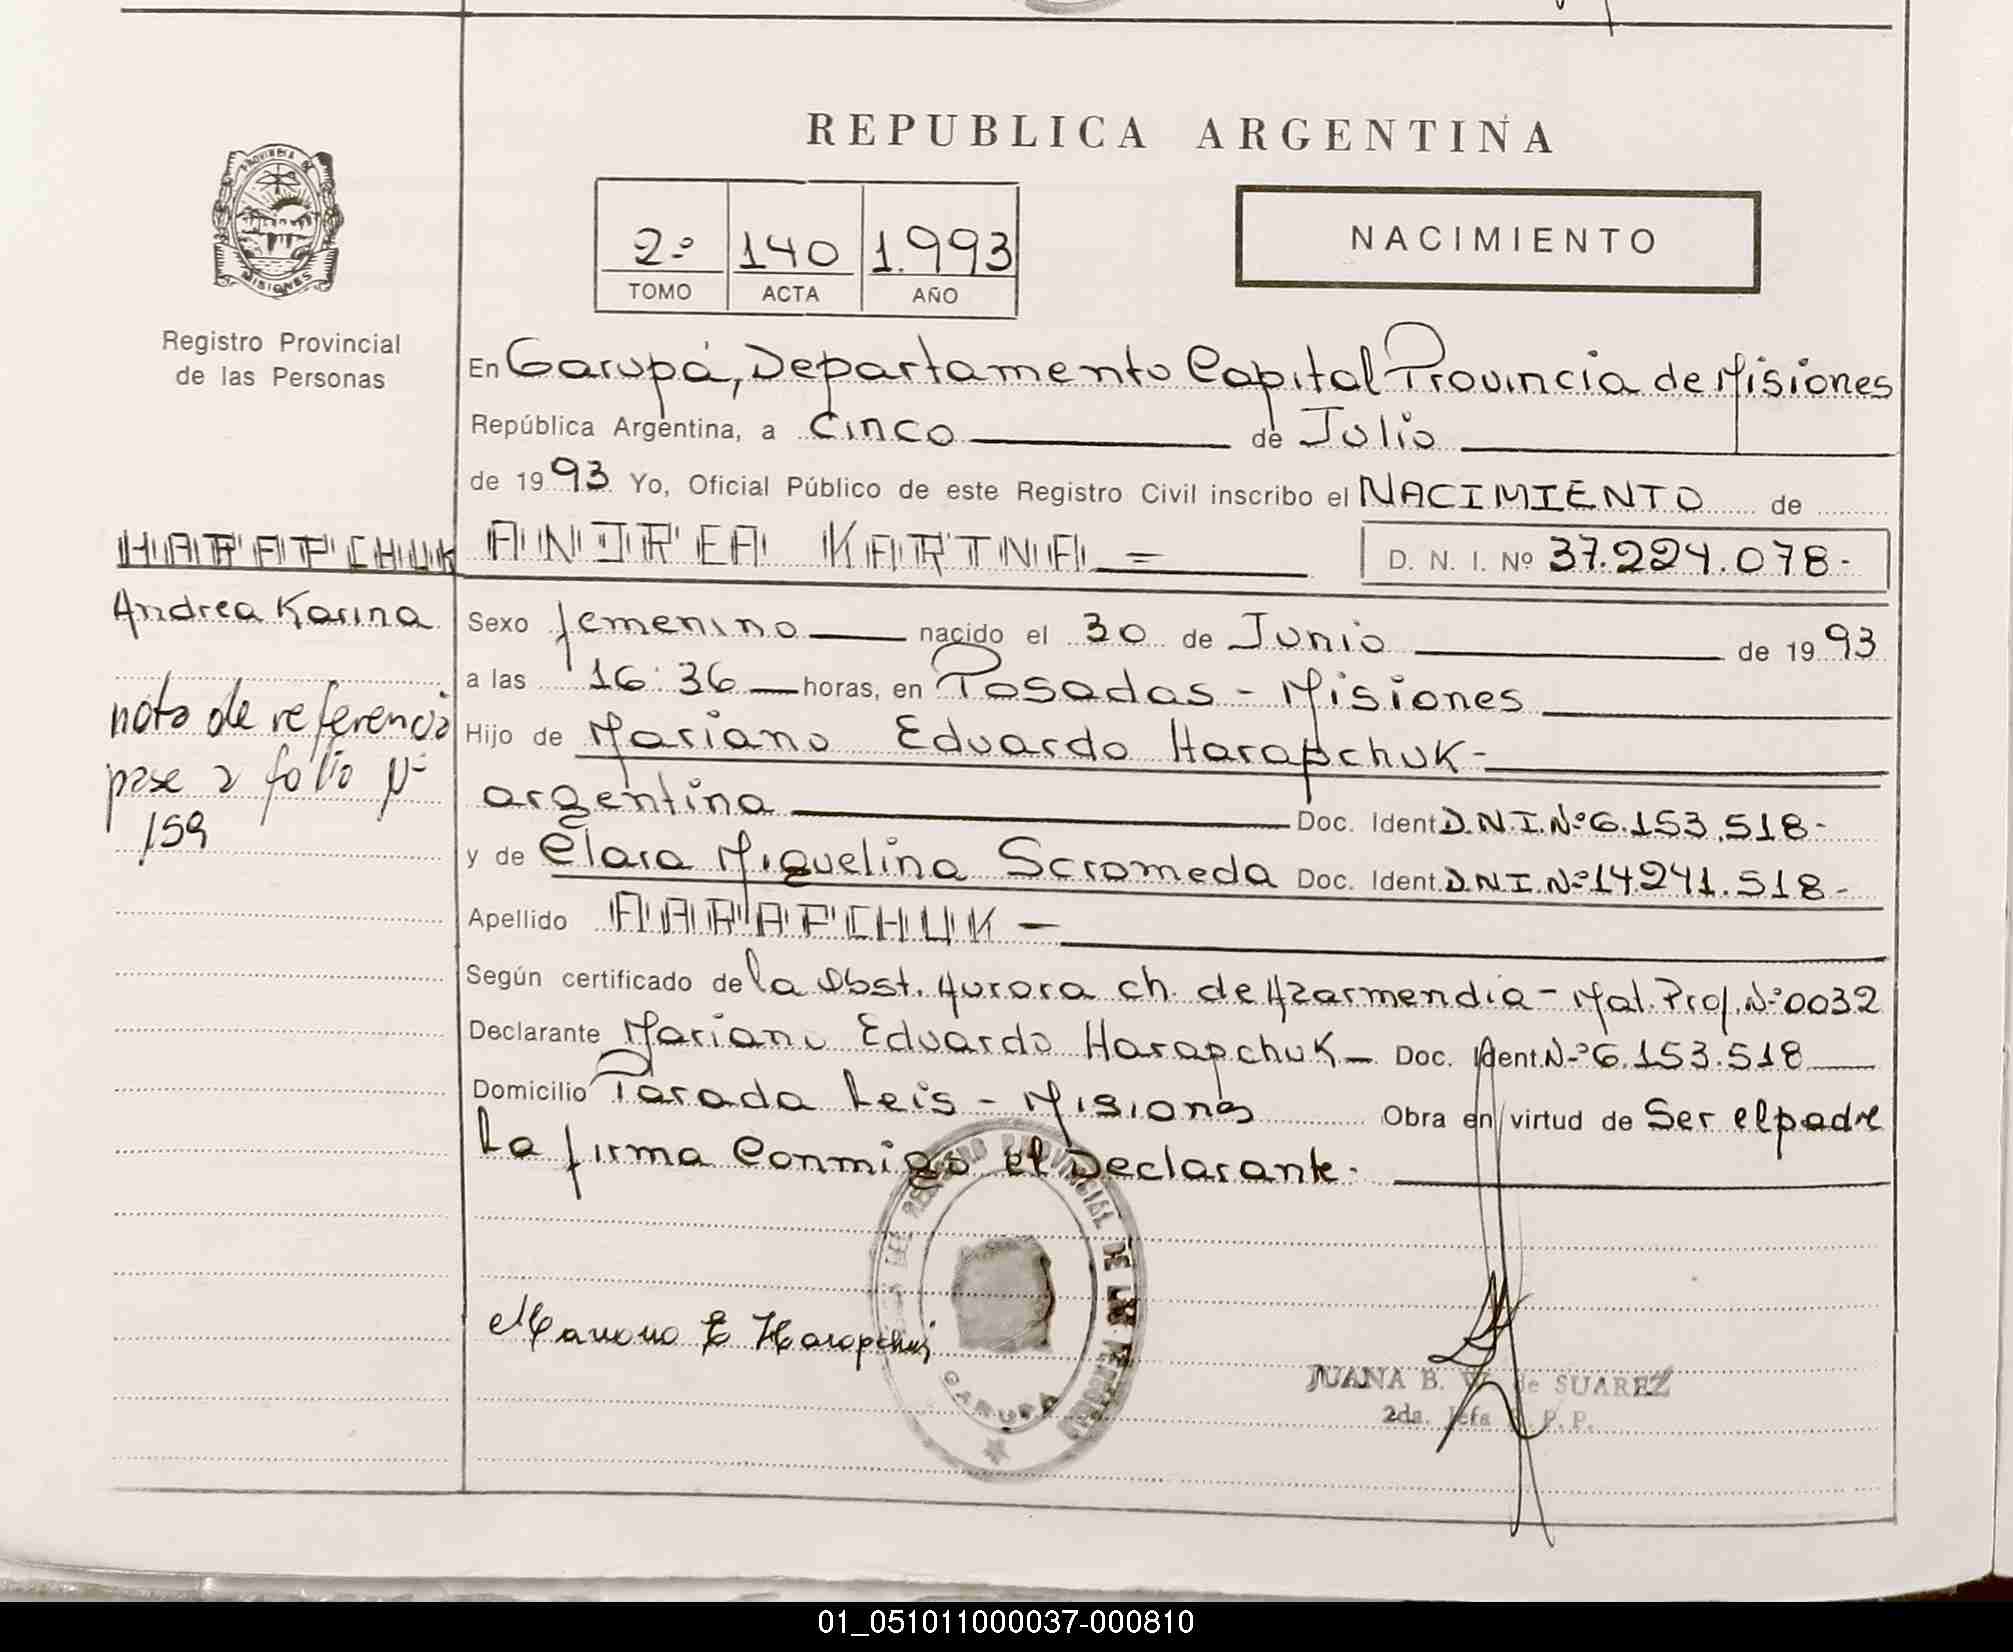 REPUBLICA ARGENTINA
PROVINCIA DE
MISIONES
Registro Provincial
de las Personas
2º 140 1.993
TOMO ACTA AÑO
NACIMIENTO
En Garupá, Departamento Capital Provincia de Misiones
República Argentina, a Cinco de Julio
de 1993 Yo, Oficial Público de este Registro Civil inscribo el NACIMIENTO de
HARAPCHUK ANDREA KARINA = D. N. I. Nº 37.224.078-
Andrea Karina
nota de referencia
pase a folio Nº
159
Sexo femenino nacido el 30 de Junio de 1993
a las 16:36 horas, en Posadas - Misiones
Hijo de Mariano Eduardo Harapchuk-
argentina Doc. Ident D.N.I.Nº 6.153.518-
y de Clara Miguelina Scromeda Doc. Ident. D.N.I.Nº 14.241.518-
Apellido HARAPCHUK -
Según certificado de la Obst. Aurora ch. de Azarmendia - Mat. Prof. Nº 0032
Declarante Mariano Eduardo Harapchuk - Doc. Ident. Nº 6.153.518
Domicilio Parada Leis - Misiones Obra en virtud de Ser el padre
La firma Conmigo el Declarante.
Mariano E Harapchuk
REGISTRO PROVINCIAL DE LAS PERSONAS
GARUPA
JUANA B. W. de SUAREZ
2da. Jefa R. P. P.
01_051011000037-000810